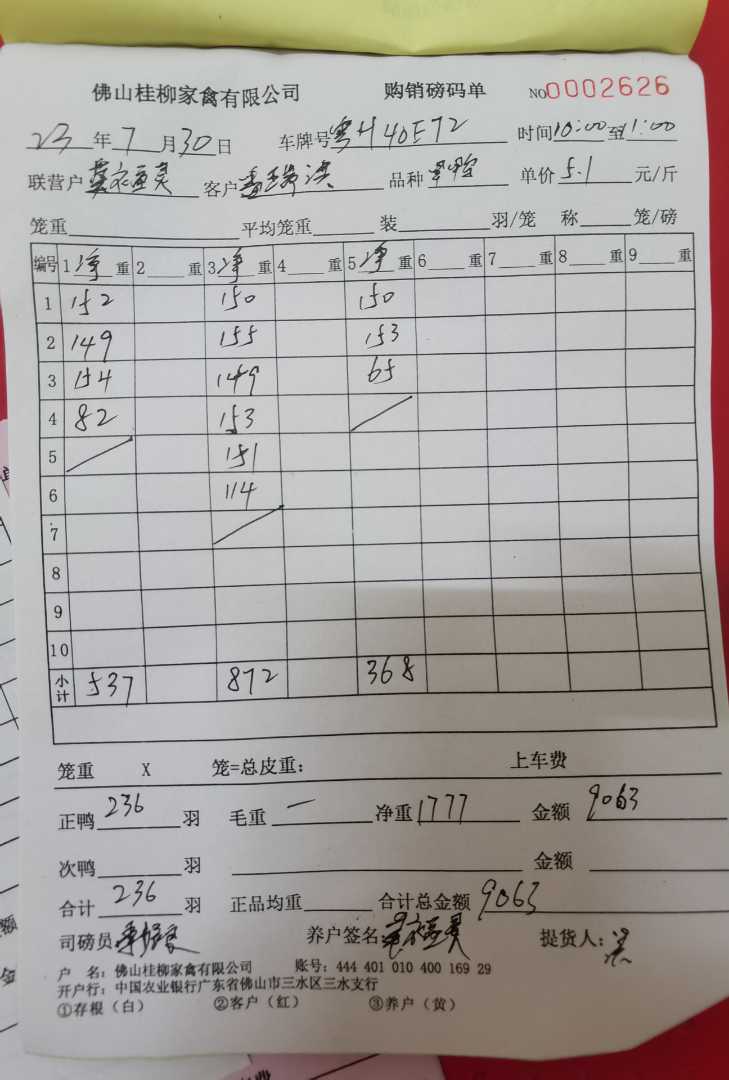 佛山桂柳家禽有限公司 购销磅码单 NO0002626
23年7月30日 车牌号粤H40E72 时间10:00至1:00
联营户 客户 品种 单价5.1元/斤
笼重 平均笼重 装 羽/笼 称 笼/磅
编号 1净重 2 重 3净重 4 重 5净重 6 重 7 重 8 重 9 重
1 152 150 150
2 149 155 153
3 154 149 65
4 82 153
5 151
6 114
7
8
9
10
小计 537 872 368
笼重 X 笼=总皮重: 上车费
正鸭236羽 毛重一 净重1777 金额9063
次鸭 羽 金额
合计236羽 正品均重 合计总金额9063
司磅员 养户签名 提货人:
户 名: 佛山桂柳家禽有限公司 账号: 444 401 010 400 169 29
开户行: 中国农业银行广东省佛山市三水区三水支行
①存根（白） ②客户（红） ③养户（黄）